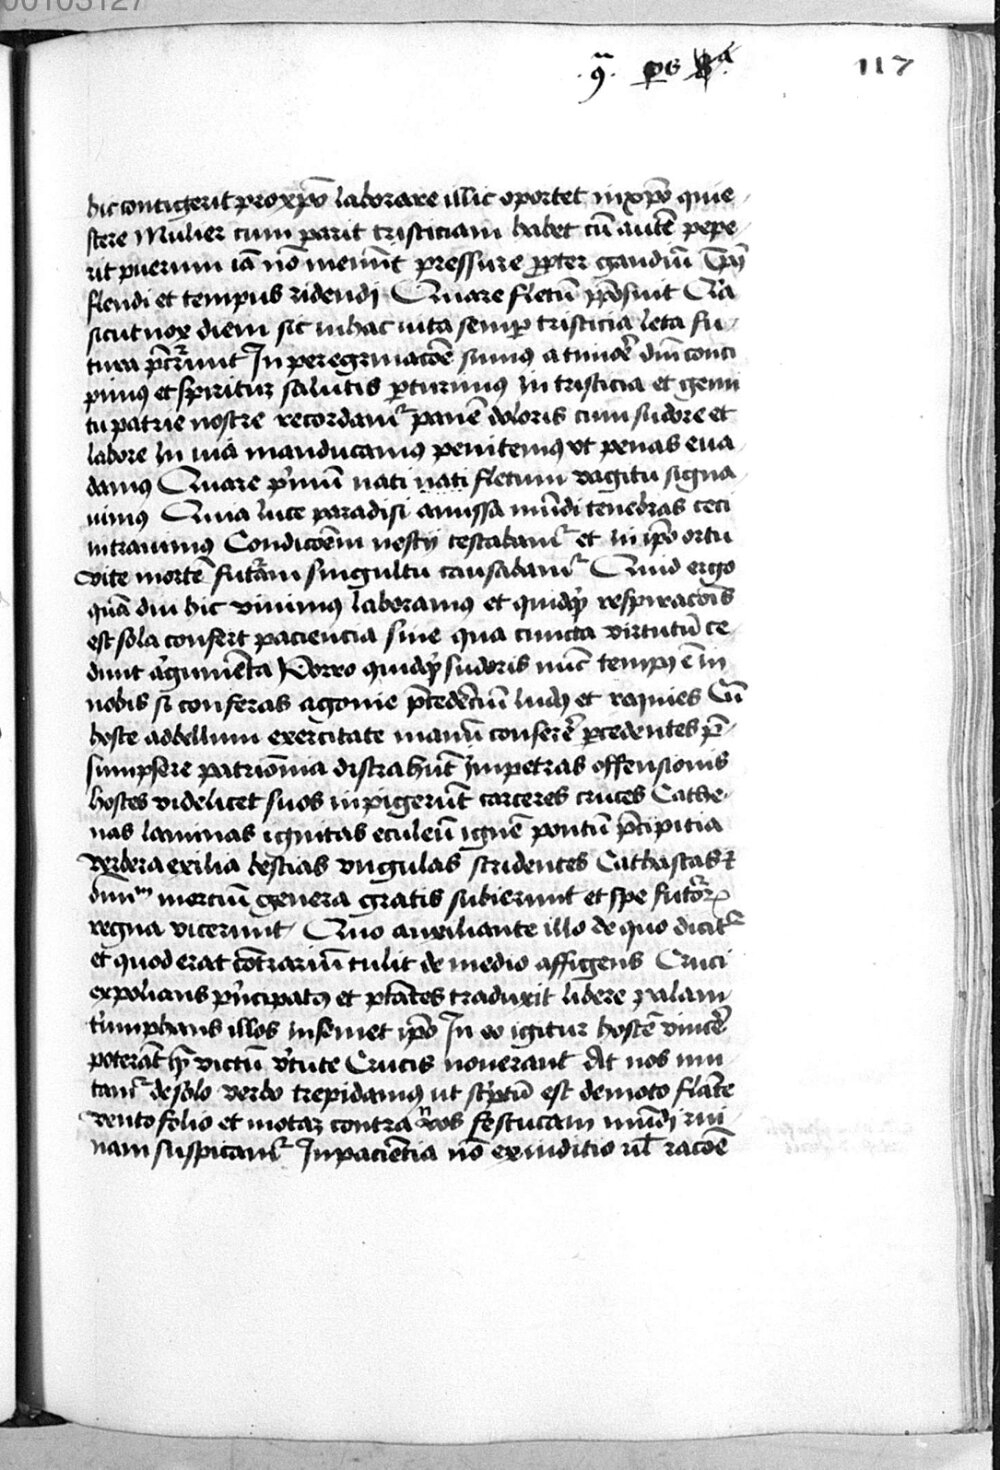 00103127
117
hic contigerit pro xpō laborare illic oportet in xpō quie
scere Mulier cum parit tristiciam habet cū autē pepe
rit puerum iā nō meminit pressure ꝓpter gaudiū Tpꝰ
flendi et tempus ridendi Quare fletū p̄posuit Quia
sicut nox diem sic in hac vita semꝑ tristicia leta fu
tura p̄currunt In peregrinacōe sumus a timore dn̄i conci
pimꝰ et spiritū salutis ꝑturimꝰ In tristicia et gemi
tu patrie nostre recordamur panē doloris cum sudore et
labore In via manducamꝰ penitemꝰ ut penas eua
damꝰ Quare pͥmū nati nati fletum vagitu signa
uimꝰ Quia luce paradisi amissa mūdi tenebras ceci
intrauimꝰ Condicōem testabamur et in ip̄o ortu
vite mortē futuram singultu causabamur Quid ergo
quādiu hic viuimꝰ laboramꝰ et quidꝗd respiracōis
est sola confert paciencia sine qua cuncta virtutū ce
dunt argumēta Porro quidꝗd sudoris nūc tempꝰ ē in
nobis si conferas agonie p̄cedēciū ludꝰ et requies Cū
hoste ad bellum exercitate manū conferre p̄cedentes p̄
sumpsere patrimonia distrahūt impetras offensionis
hostes videlicet suos inpigerūt carceres cruces Cathe
nas laminas ignitas eculeū ignē pontū p̄cipitia
verbera exilia bestias ungulas stridentes Cathastas et
mortiū genera gratis subierunt et spe futurorum
regna vicerunt Quo auxiliante illo de quo dicitur
et quod erat cōtrariū tulit de medio affigens Cruci
expolians pͥncipatꝰ et ptātes traduxit libere palam
triumphans illos in semet ip̄o In eo igitur hostē vincere
poterāt quē victū vͥtute Crucis nouerant At nos
de solo verbo trepidamꝰ ut scriptū est de moto flante
vento folio et motam contra nos festucam mūdi rui
nam suspicamur Inpaciētia nō ex iuditio ul̄ racōe